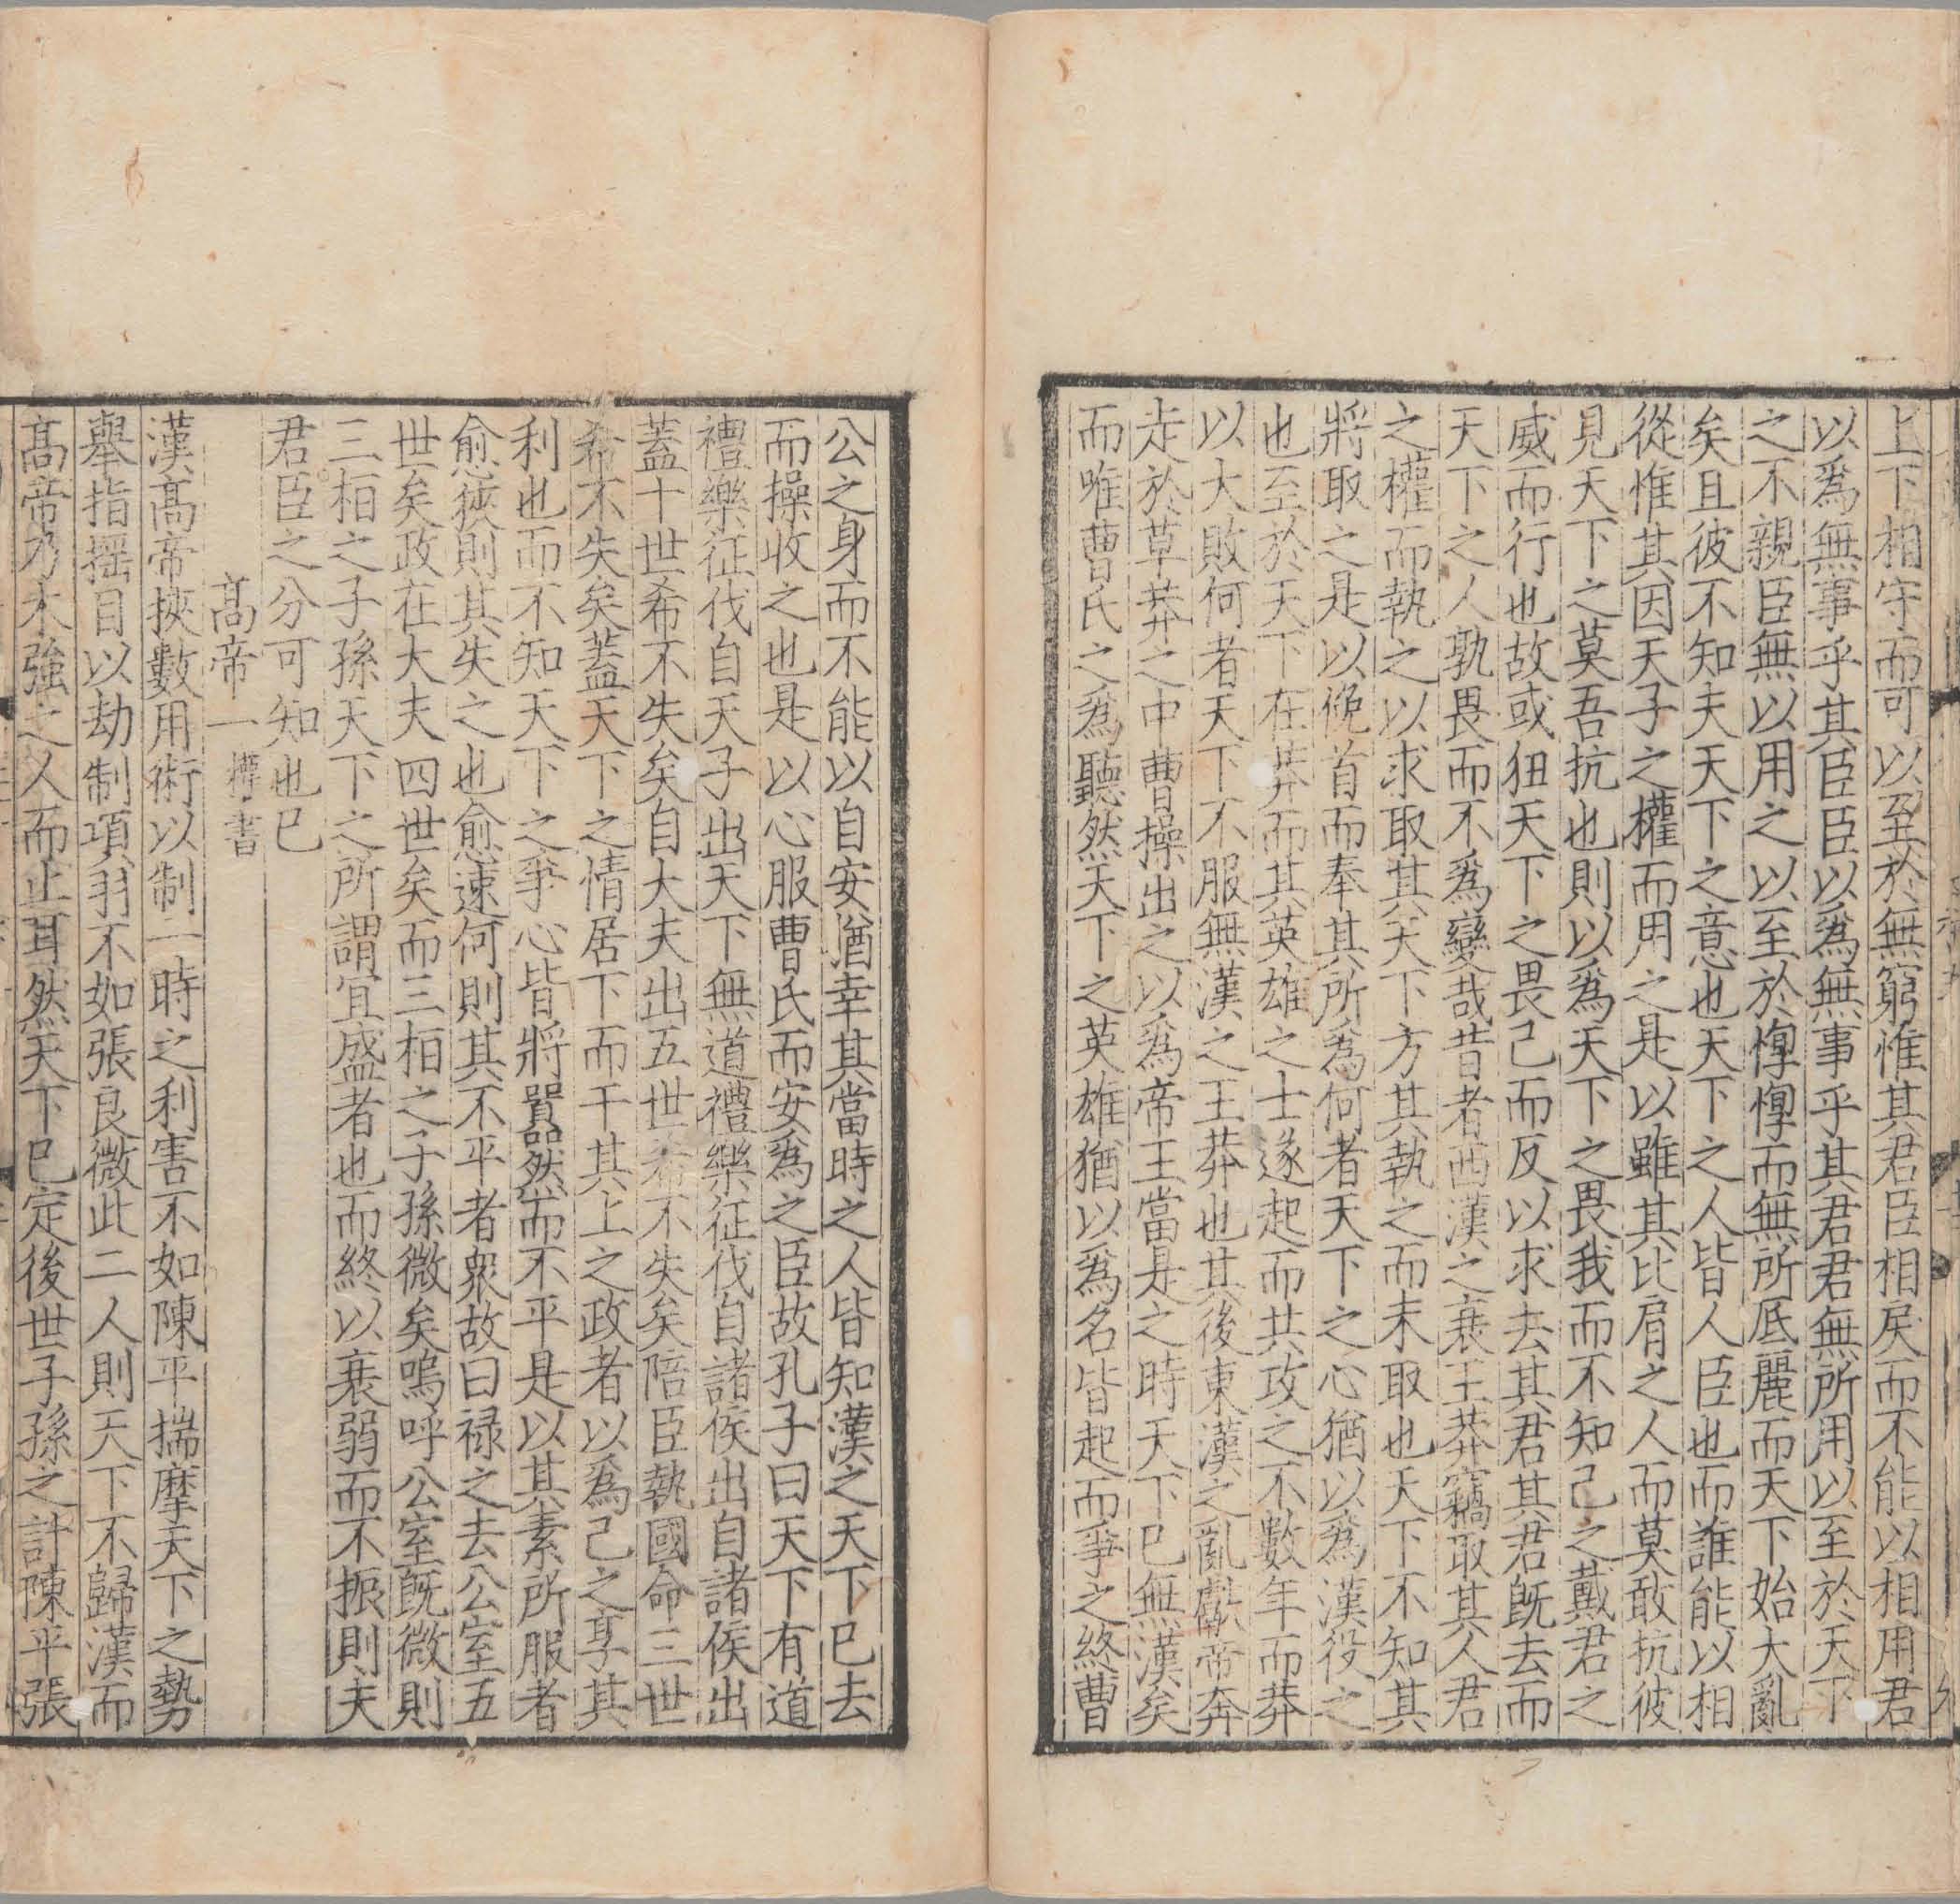 上下相守而可以至於無窮惟其君臣相戾而不能以相用君
以爲無事乎其臣臣以爲無事乎其君君無所用以至於天下
之不親臣無以用之以至於惸惸而無所底麗而天下始大亂
矣且彼不知夫天下之意也天下之人皆人臣也而誰能以相
從惟其因天子之權而用之是以雖其比肩之人而莫敢抗彼
見天下之莫吾抗也則以爲天下之畏我而不知己之戴君之
威而行也故或狃天下之畏己而反以求去其君其君既去而
天下之人孰畏而不爲變哉昔者西漢之衰王莽竊取其人君
之權而執之以求取其天下方其執之而未取也天下不知其
將取之是以俛首而奉其所爲何者天下之心猶以爲漢役之
也至於天下在莽而其英雄之士遂起而共攻之不數年而莽
以大敗何者天下不服無漢之王莽也其後東漢之亂獻帝奔
走於草莽之中曹操出之以爲帝王當是之時天下已無漢矣
而唯曹氏之爲聽然天下之英雄猶以爲名皆起而爭之終曹
公之身而不能以自安猶幸其當時之人皆知漢之天下已去
而操收之也是以心服曹氏而安爲之臣故孔子曰天下有道
禮樂征伐自天子出天下無道禮樂征伐自諸侯出自諸侯出
蓋十世希不失矣自大夫出五世希不失矣陪臣執國命三世
希不失矣蓋天下之情居下而干其上之政者以爲己之享其
利也而不知天下之爭心皆將囂然而不平是以其素所服者
愈狹則其失之也愈速何則其不平者衆故曰禄之去公室五
世矣政在大夫四世矣而三桓之子孫微矣嗚呼公室既微則
三桓之子孫天下之所謂宜盛者也而終以衰弱而不振則夫
君臣之分可知也已
高帝一權書
漢高帝挾數用術以制一時之利害不如陳平揣摩天下之勢
舉指揺目以劫制項羽不如張良微此二人則天下不歸漢而
高帝乃木強之人而止耳然天下已定後世子孫之計陳平張